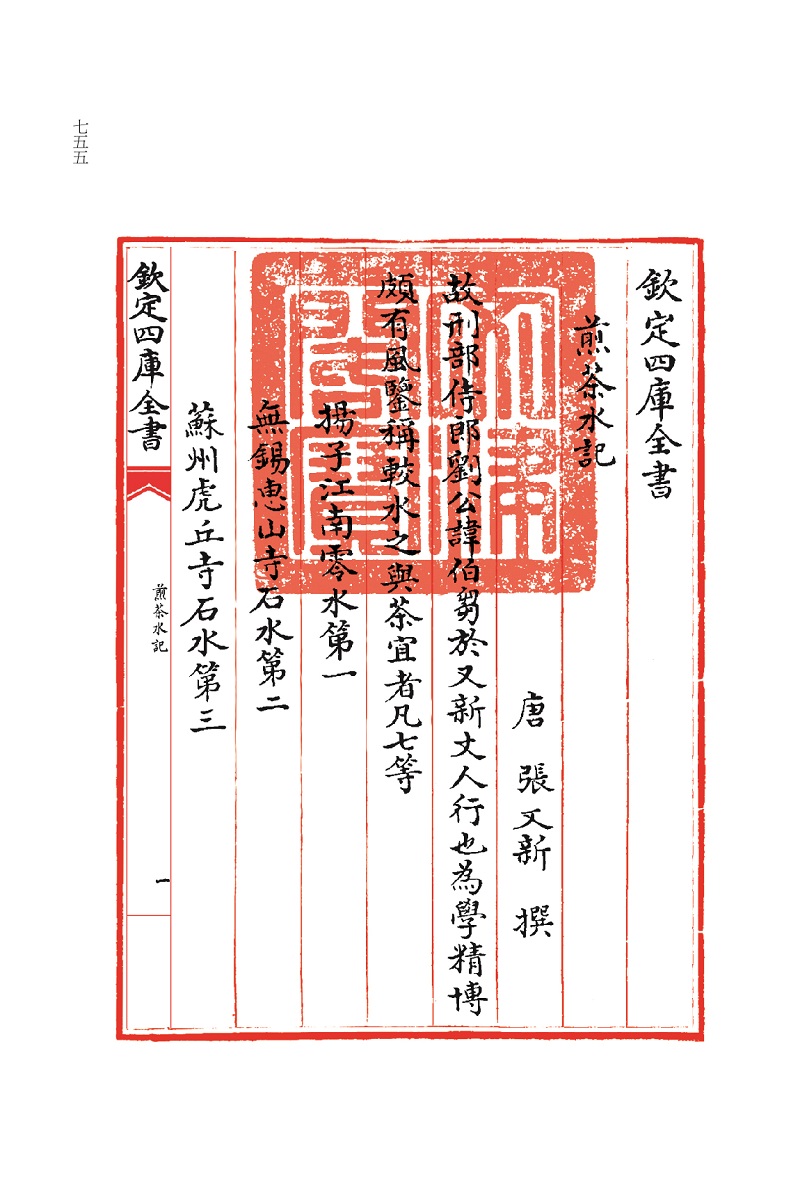 欽定四庫全書
煎茶水記
唐 張又新 撰
故刑部侍郎劉公諱伯芻於又新丈人行也為學精博
頗有風鑒稱較水之與茶宜者凡七等
揚子江南零水第一
無錫惠山寺石水第二
蘇州虎丘寺石水第三
欽定四庫全書
煎茶水記
一
七五五